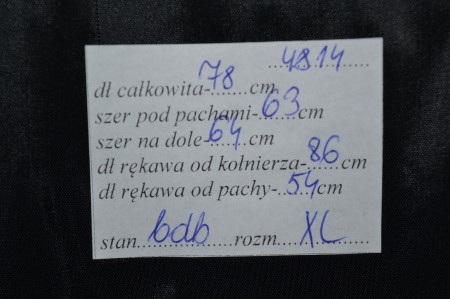 4814
dł całkowita-78cm
szer pod pachami-63cm
szer na dole-64cm
dł rękawa od kołnierza-86cm
dł rękawa od pachy-54cm
stan bdb rozm. XL